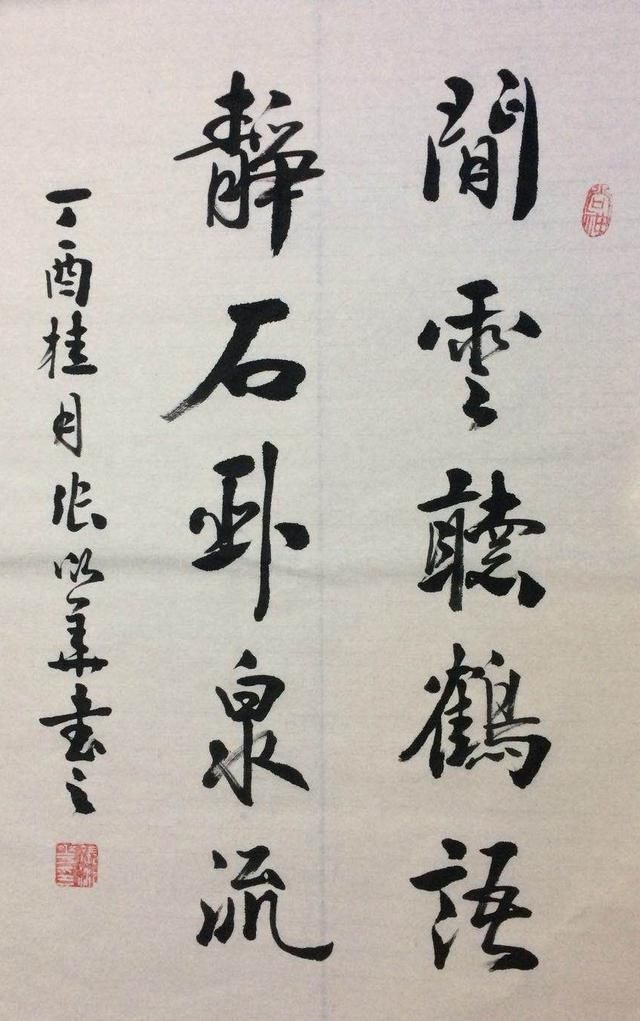 閒雲聽鶴語
靜石卧泉流
丁酉桂月張以華書之